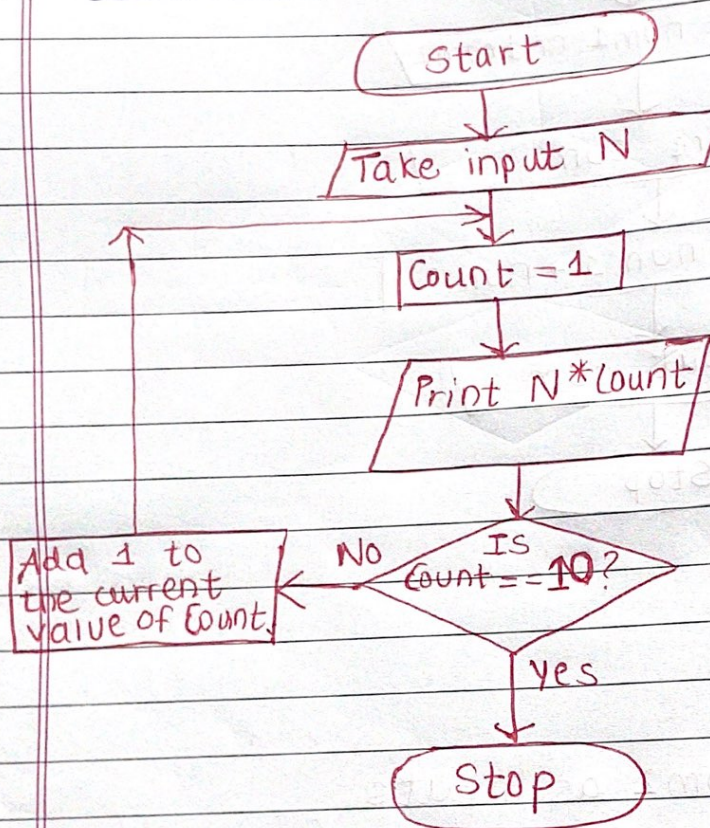 Start
Take input N
Count = 1
Print N * Count
IS
Count == 10?
No
Add 1 to
the current
value of Count.
yes
Stop